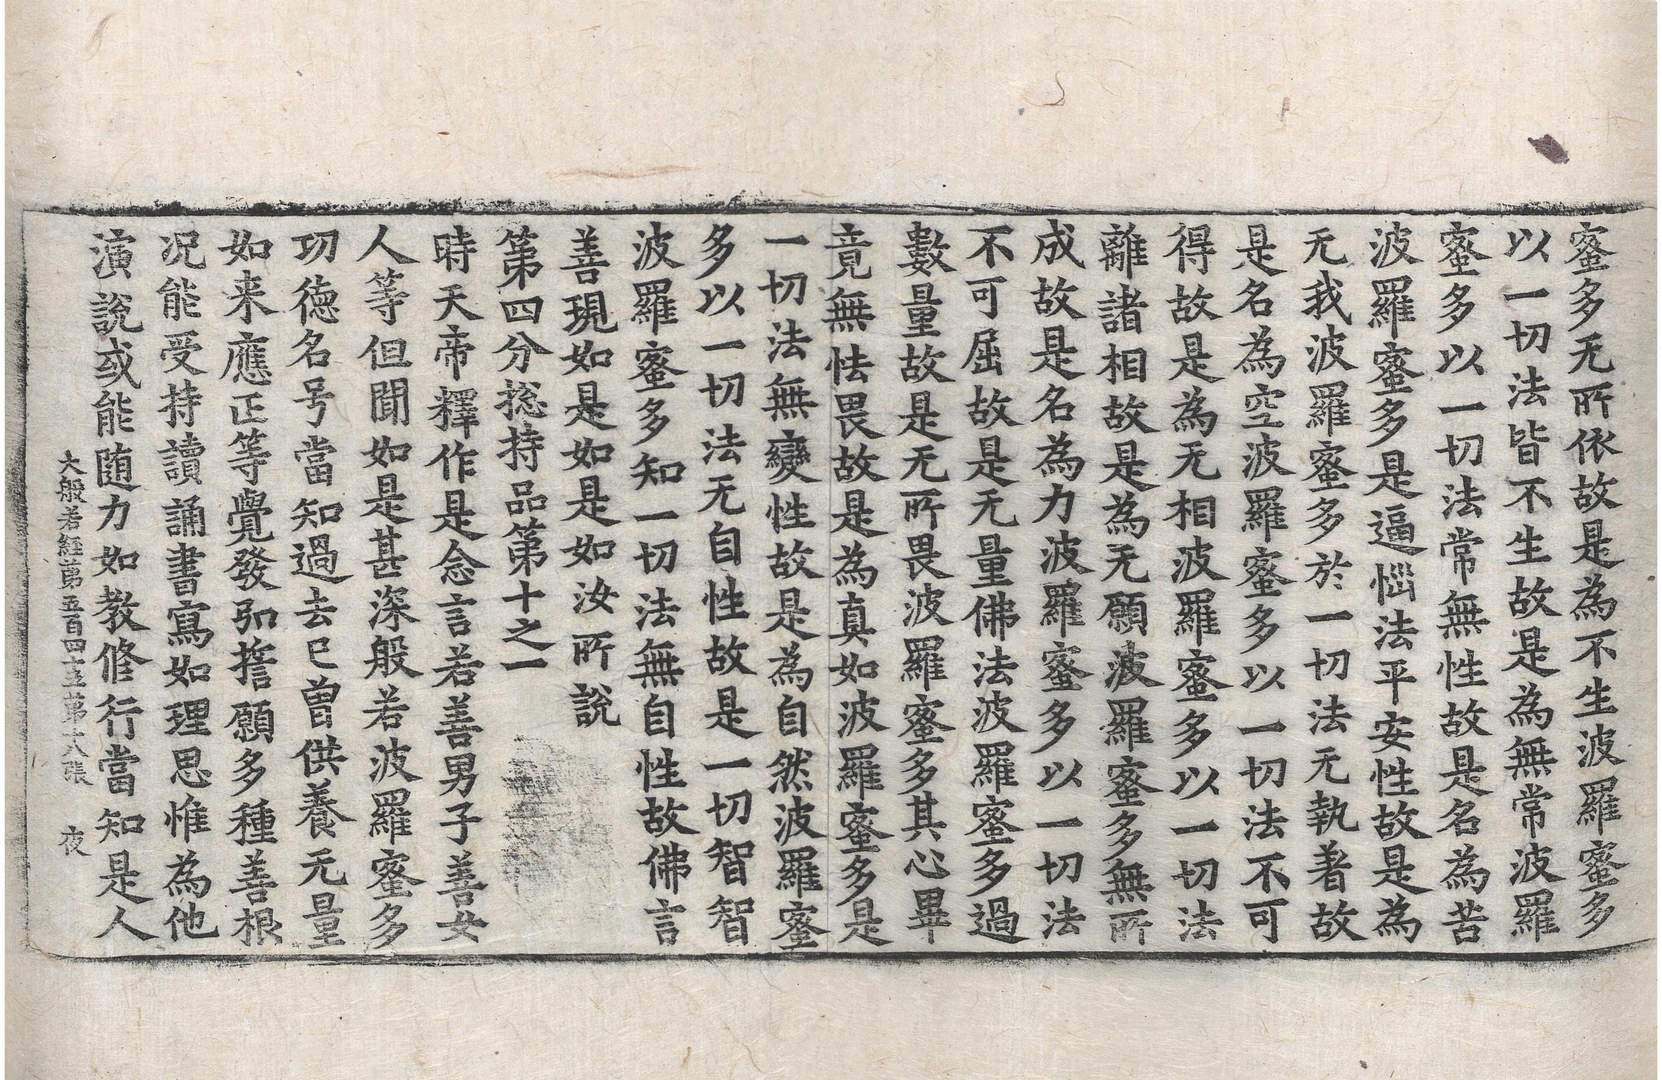 蜜多无所依故是為不生波羅蜜多
以一切法皆不生故是為無常波羅
蜜多以一切法常無性故是名為苦
波羅蜜多是逼惱法平安性故是為
无我波羅蜜多於一切法无執著故
是名為空波羅蜜多以一切法不可
得故是為无相波羅蜜多以一切法
離諸相故是為无願波羅蜜多無所
成故是名為力波羅蜜多以一切法
不可屈故是无量佛法波羅蜜多過
數量故是无所畏波羅蜜多其心畢
竟無怯畏故是為真如波羅蜜多是
一切法無變性故是為自然波羅蜜
多以一切法无自性故是一切智智
波羅蜜多知一切法無自性故佛言
善現如是如是如汝所說
第四分捴持品第十之一
時天帝釋作是念言若善男子善女
人等但聞如是甚深般若波羅蜜多
功德名号當知過去已曾供養无量
如来應正等覺發弘誓願多種善根
況能受持讀誦書寫如理思惟為他
演說或能随力如教修行當知是人
大般若經第五百四十五第十六張 夜